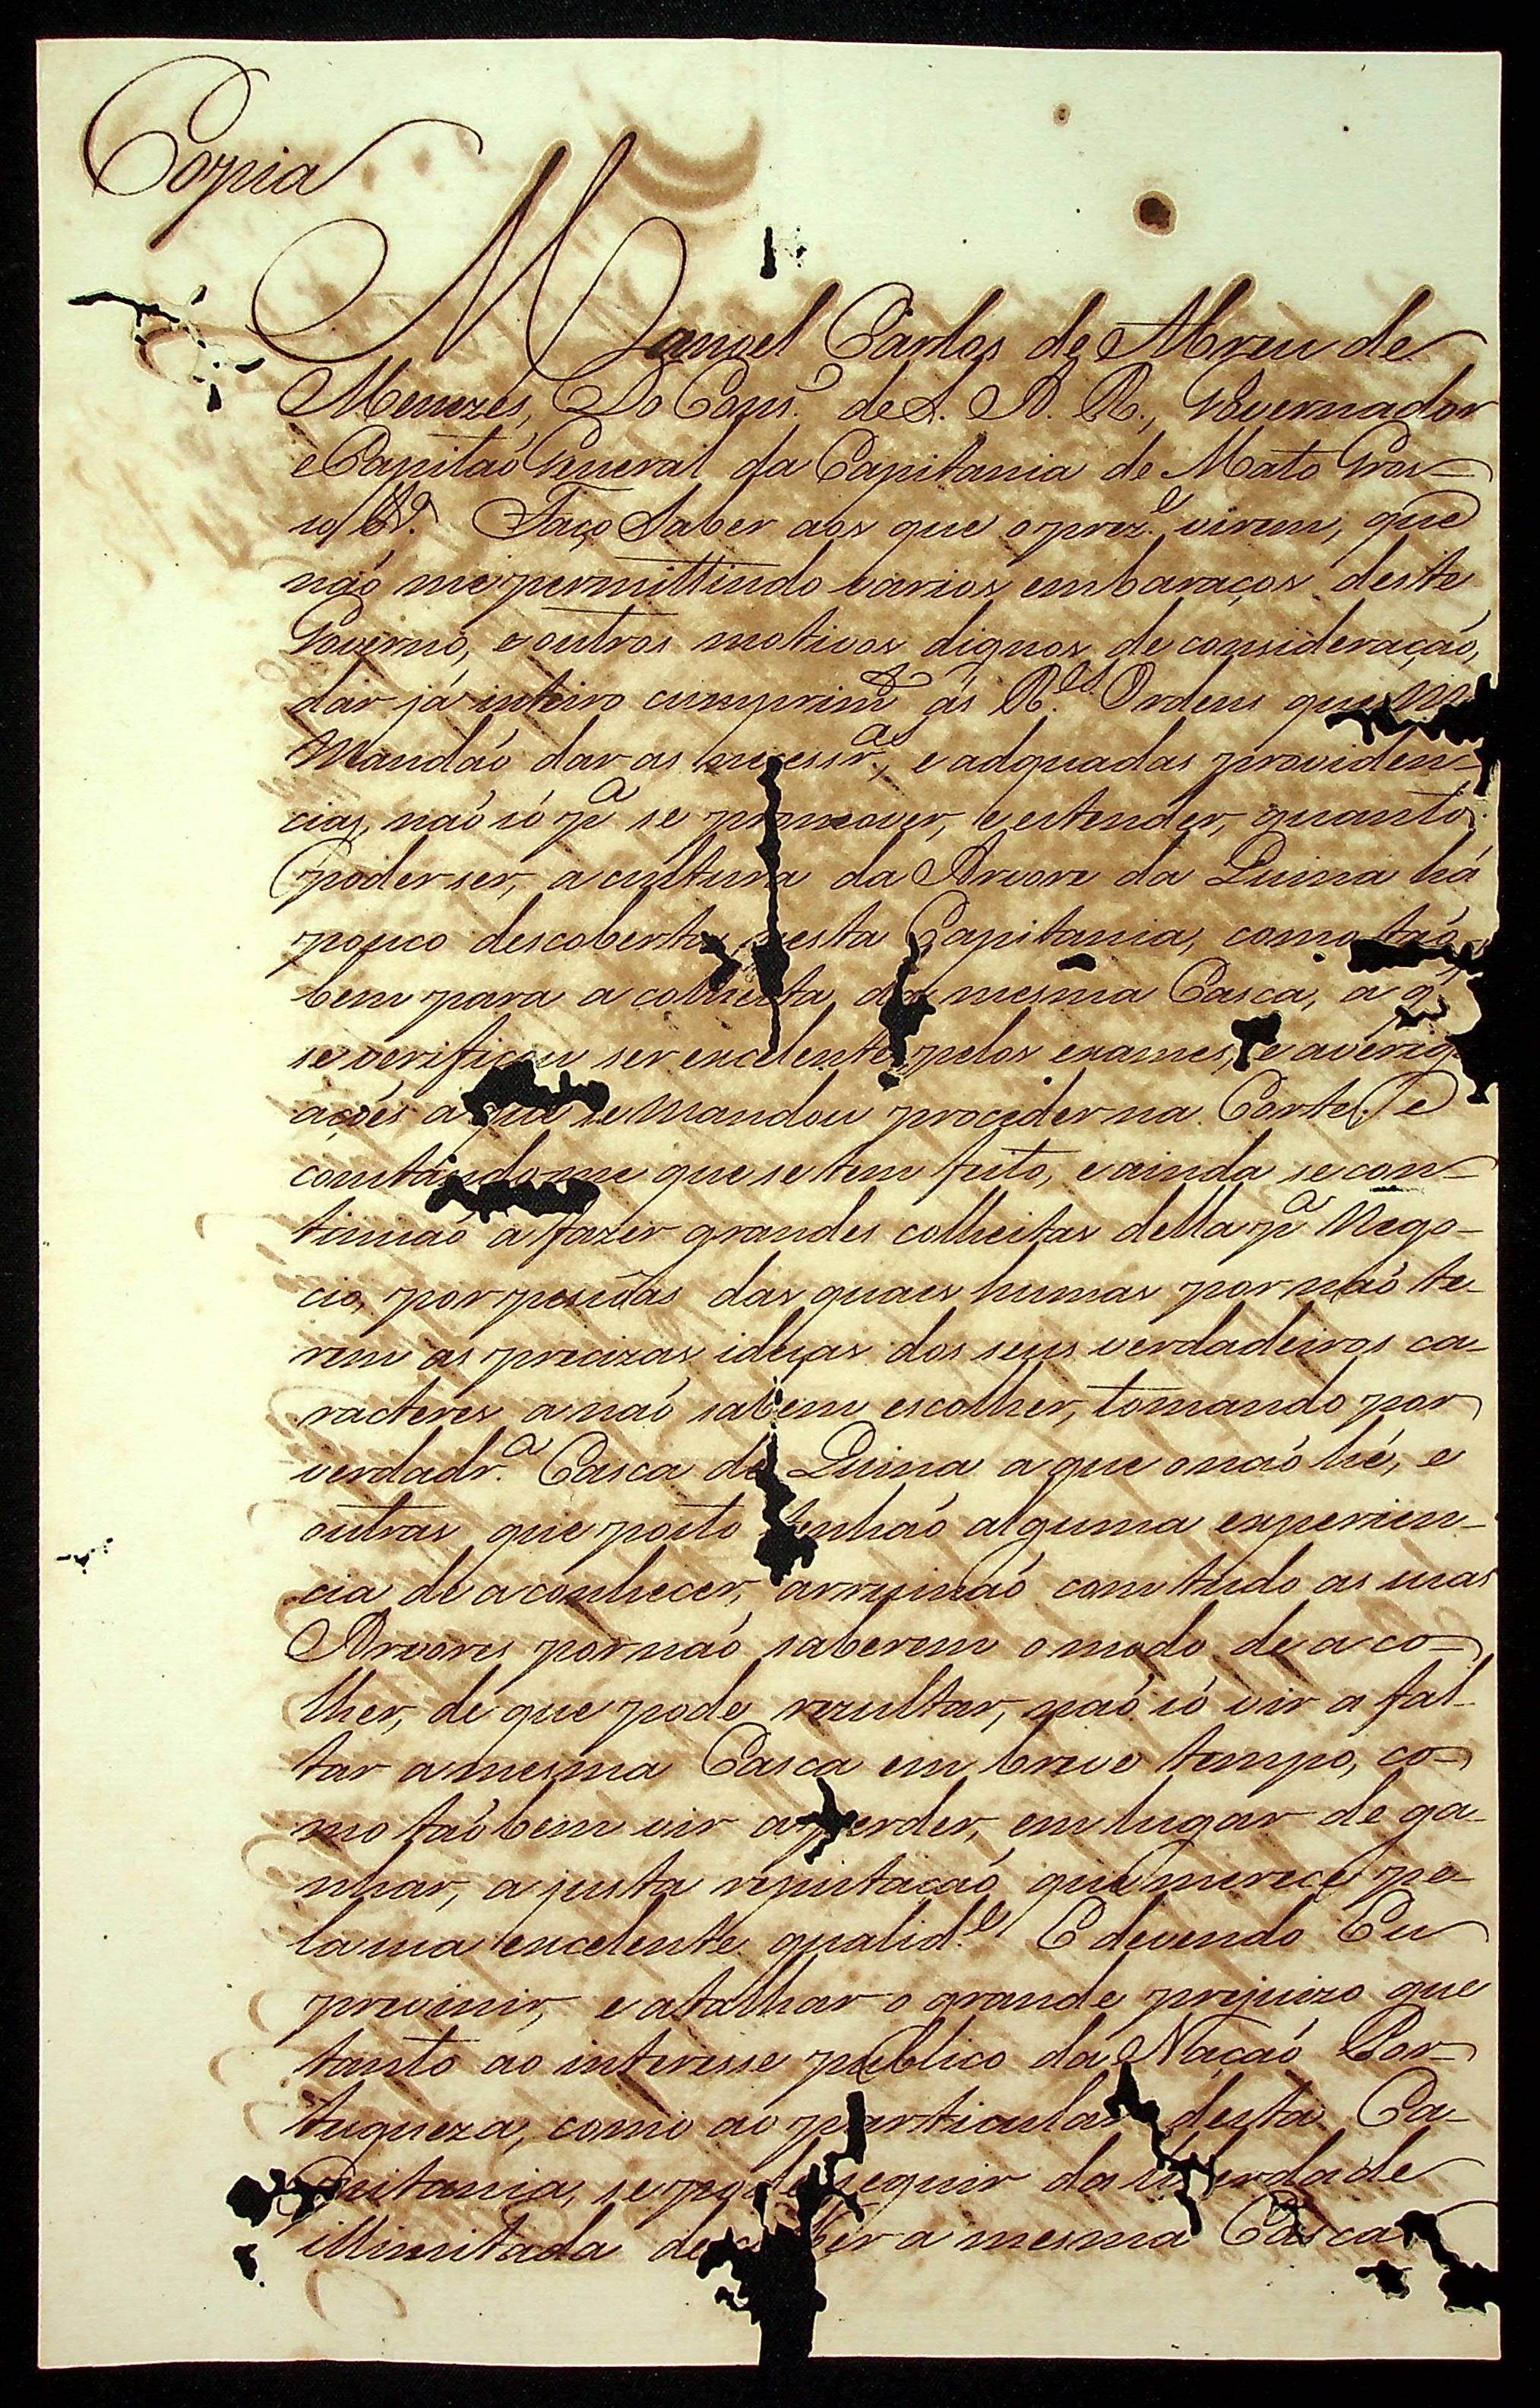 Copia
Manoel Carlos de Abreu de
Menezes, Do Cons.º de S. A. R., Governador
e Capitaó General da Capitania de Mato Gros-
so &.ª Faço Saber aos que o prez.e virem, que
naó me permittindo varios embaraços deste
Governo, e outros motivos dignos de consideraçaó,
dar já inteiro cumprim.to ás R.es Ordens que m
Mandaó dar as necessr.as, e adquadas providen-
cias, naó só p.a se promover, e estender, quanto
poder ser, a cultura da Arvore da Quina há
pouco descoberta nesta Capitania, como taó
bem para a colheita da mesma Casca, a q
se verificou ser excelente pelos exames, e averig
ações a que se Mandou proceder na Corte: e
constando-me que se tem feito, e ainda se con-
tinuaó a fazer grandes colheitas della p.a Nego-
cio, por pessoas das quaes humas por naó te-
rem as precizas ideas dos seus verdadeiros ca-
racteres a naó sabem escolher, tomando por
verdadr.a Casca de Quina a que o naó hé, e
outras que posto tenhaó alguma experien-
cia de a conhecer, arruinaó com tudo as suas
Arvores por naó saberem o modo de a co-
lher, de que pode rezultar, naó só vir a fal-
tar a mesma Casca em breve tempo, co-
mo taó bem vir a perder, em lugar de ga-
nhar, a justa reputaçaó que merece pe-
la sua excelente qualid.e E devendo Eu
previnir, e atalhar o grande prejuizo que
tanto ao interesse publico da Naçaó Por-
tugueza, como ao particular desta Ca-
pitania, se pode seguir da liberdade
illimitada de colher a mesma Casca